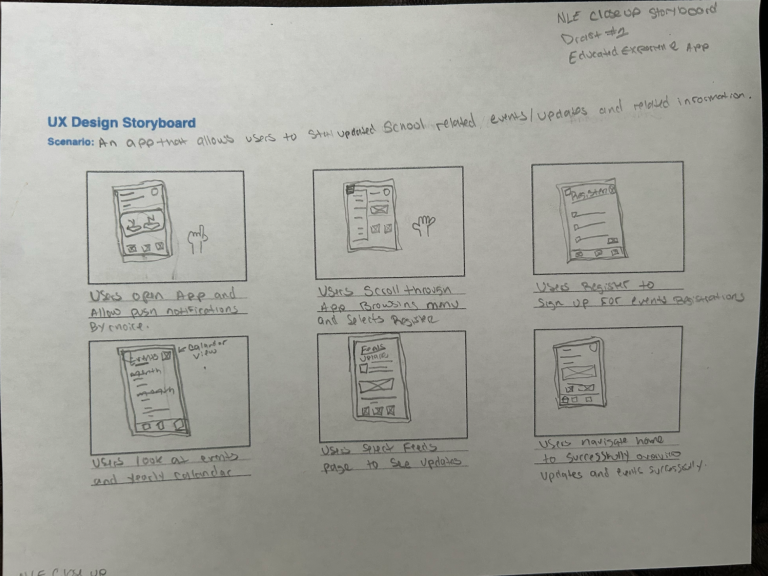 NLE Close up Storyboard
Draft #1
Educated Experience App
UX Design Storyboard
Scenario: An app that allows users to stay updated School related events/updates and related information.
Register
Users open App and
Allow push notifications
By choice.
Users Scroll through
App Browsing menu
and Selects Register
Users Register to
Sign up For events Registrations
Events
Calendar
view
month
month
Feeds
Updates
Users look at events
and yearly calendar
Users Select Feeds
page to see updates
Users navigate home
to successfully
updates and events successfully.
NLE Close up